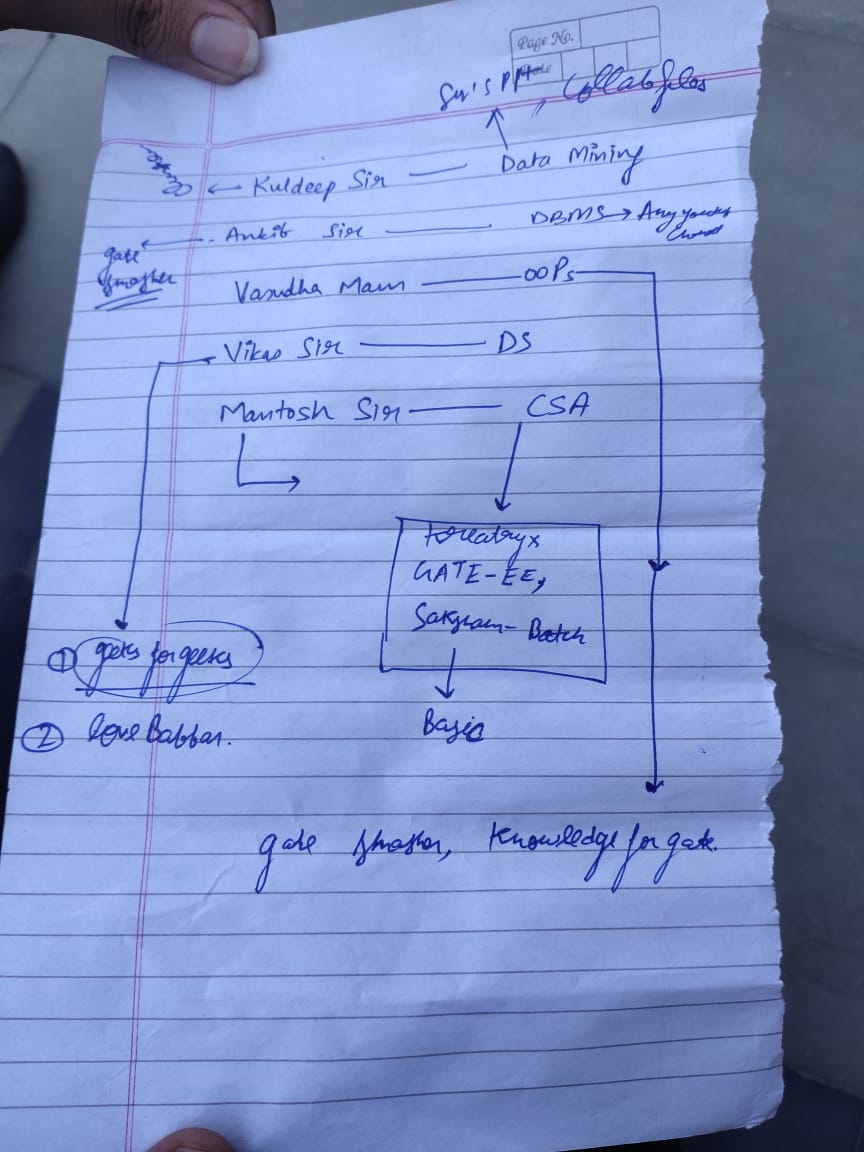 Page No.
Sir's PPT, Collab files
Kuldeep Sir — Data Mining
Ankit Sir — DBMS → Any youtube
gate smasher
Vasudha Mam — OOPs
Vikas Sir — DS
Mantosh Sir — CSA
Kreatryx
GATE-EE,
Saksham-Batch
① geeks for geeks
② love Babbar.
Basic
gate smasher, Knowledge for gate.